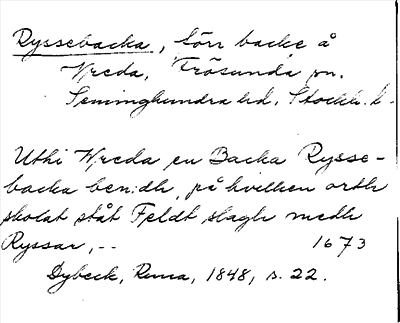 Ryssebacka, förr backe å
Vreda, Frösunda sn.
Seminghundra hd, Stockh. l.
Uthi Wreda en Backa Rysse-
backa ben:dh, på hvilken orth
skolat ståt Feldt slagh medh
Ryssar, -- 1673
Dybeck, Runa, 1848, s. 22.